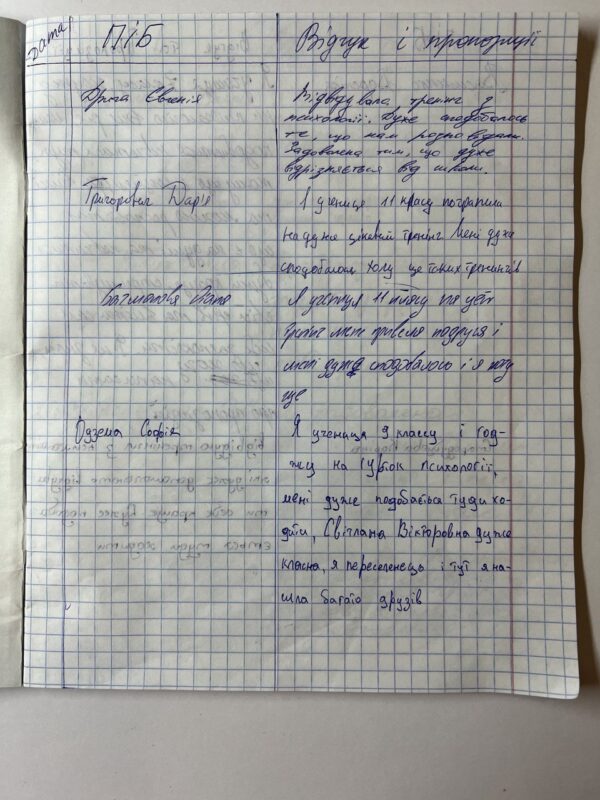 Дата ПІБ Відгук і пропозиції
Друга Євгенія Відвідувала тренінг з
психології. Дуже сподобалось
те, що нам розповідали.
Задоволена тим, що дуже
відрізняється від школи.
Григорович Дар'я Я учениця 11 класу потрапила
на дуже цікавий тренінг Мені дуже
сподобалося Хочу ще таких тренингів
Я учениця 11 класу на цей
тренінг мене привела подруга і
мені дуже сподобалось і я хочу
ще
Одзема Софія Я учениця 9 классу і год-
жу на гурток психології,
мені дуже подобається туди хо-
дити, Світлана Вікторовна дуже
класна, я переселенець і тут я на-
шла багато друзів